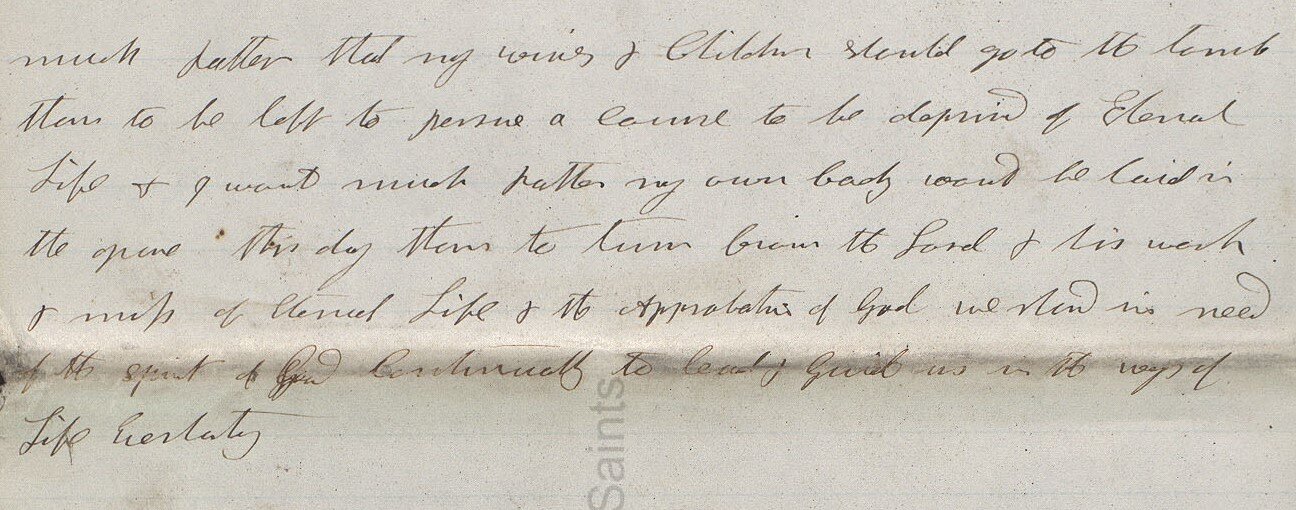 much rather that my wives & Children should go to the tomb
then to be left to persue a course to be deprivd of Eternal
Life & I would much rather my own body would be laid in
the grave this day then to turn from the Lord & his work
& miss of Eternal Life & the Approbation of God we stand in need
of the spirit of God continually to lead & Guide us in the ways of
Life
Saints